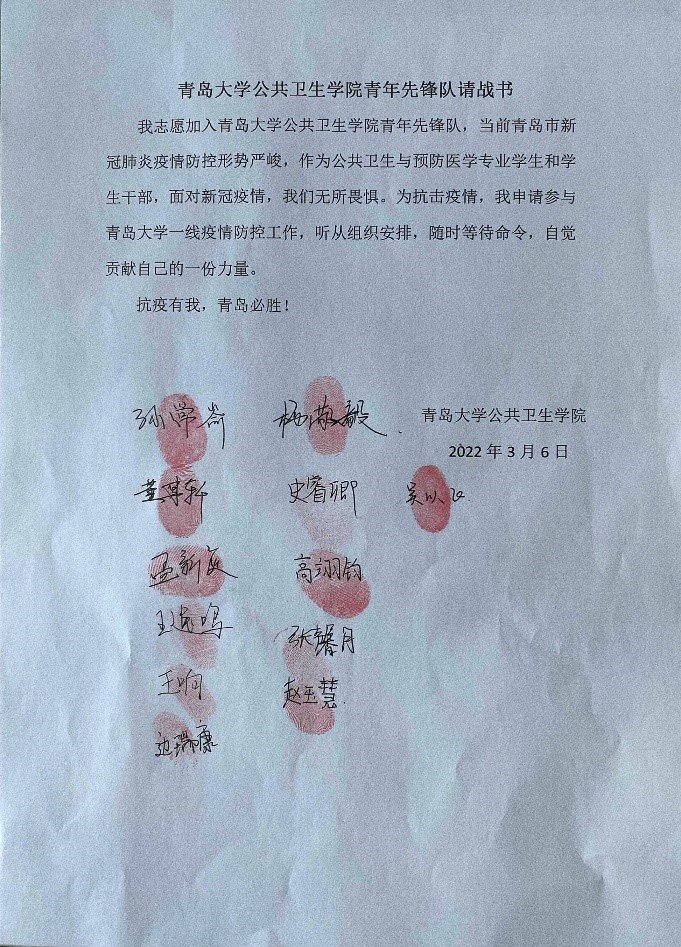 青岛大学公共卫生学院青年先锋队请战书
我志愿加入青岛大学公共卫生学院青年先锋队，当前青岛市新
冠肺炎疫情防控形势严峻，作为公共卫生与预防医学专业学生和学
生干部，面对新冠疫情，我们无所畏惧。为抗击疫情，我申请参与
青岛大学一线疫情防控工作，听从组织安排，随时等待命令，自觉
贡献自己的一份力量。
抗疫有我，青岛必胜！
青岛大学公共卫生学院
2022 年 3 月 6 日
史睿卿
高翊钧
张馨月
王响
赵玉慧
边瑞康